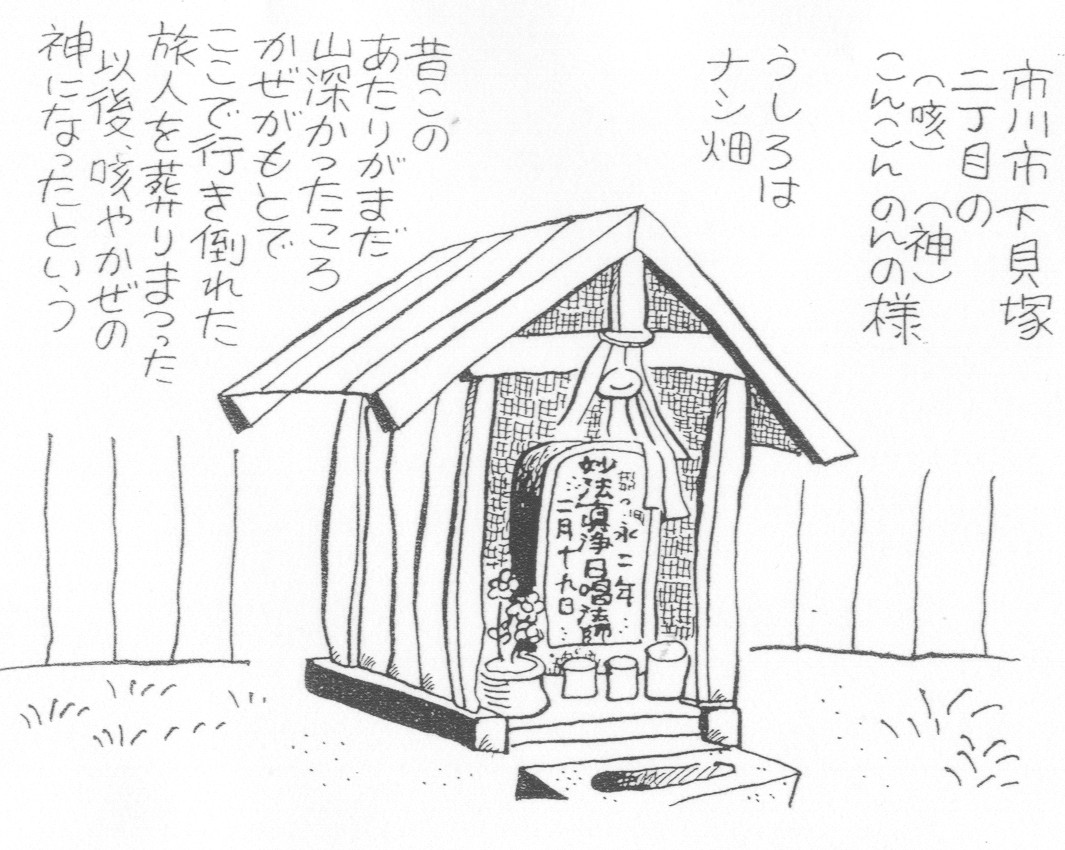 市川市 下貝塚
二丁目の
(咳) (神)
こんこん のんの様
うしろは
ナシ畑
昔この
あたりがまだ
山深かったころ
かぜがもとで
ここで行き倒れた
旅人を葬りまつった
以後、咳やかぜの
神になったという
永二年
妙法真浄日唱法師
二月十九日